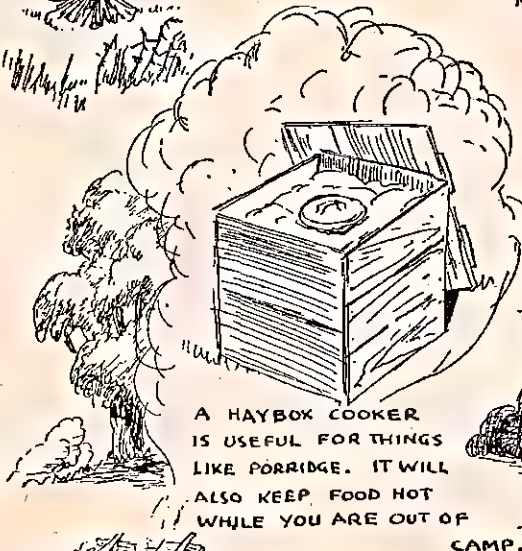 A HAYBOX COOKER
IS USEFUL FOR THINGS
LIKE PORRIDGE. IT WILL
ALSO KEEP FOOD HOT
WHILE YOU ARE OUT OF
CAMP.